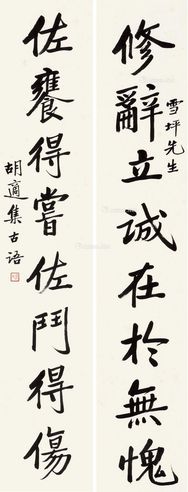 雪坪先生
修辭立誠在於無愧
佐饔得嘗佐鬥得傷
胡適集古語